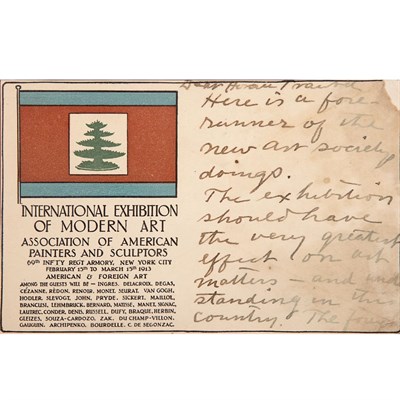 INTERNATIONAL EXHIBITION
OF MODERN ART
ASSOCIATION OF AMERICAN
PAINTERS AND SCULPTORS
69th INFTY REGT ARMORY, NEW YORK CITY
FEBRUARY 15th TO MARCH 15th 1913
AMERICAN & FOREIGN ART
AMONG THE GUESTS WILL BE — INGRES, DELACROIX, DEGAS,
CÉZANNE, REDON, RENOIR, MONET, SEURAT, VAN GOGH,
HODLER, SLEVOGT, JOHN, PRYDE, SICKERT, MAILLOL,
BRANCUSI, LEHMBRUCK, BERNARD, MATISSE, MANET, SIGNAC,
LAUTREC, CONDER, DENIS, RUSSELL, DUFY, BRAQUE, HERBIN,
GLEIZES, SOUZA-CARDOZO, ZAK, DU CHAMP-VILLON,
GAUGUIN, ARCHIPENKO, BOURDELLE, C. DE SEGONZAC.
Dear
Here is a fore-
runner of the
new art society
doings.
The exhibition
should have
the very greatest
effect on art
matters — and und
standing in this
country. The foreign